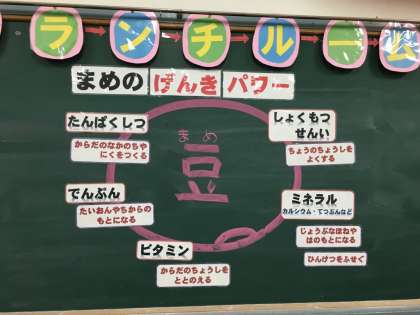 ランチルーム
まめの げんき パワー
たんぱくしつ
からだのなかのちや
にくをつくる
しょくもつ
せんい
ちょうのちょうしを
よくする
まめ
豆
でんぷん
たいおんやちからの
もとになる
ミネラル
カルシウム・てつぶんなど
じょうぶなほねや
はのもとになる
ひんけつをふせぐ
ビタミン
からだのちょうしを
ととのえる